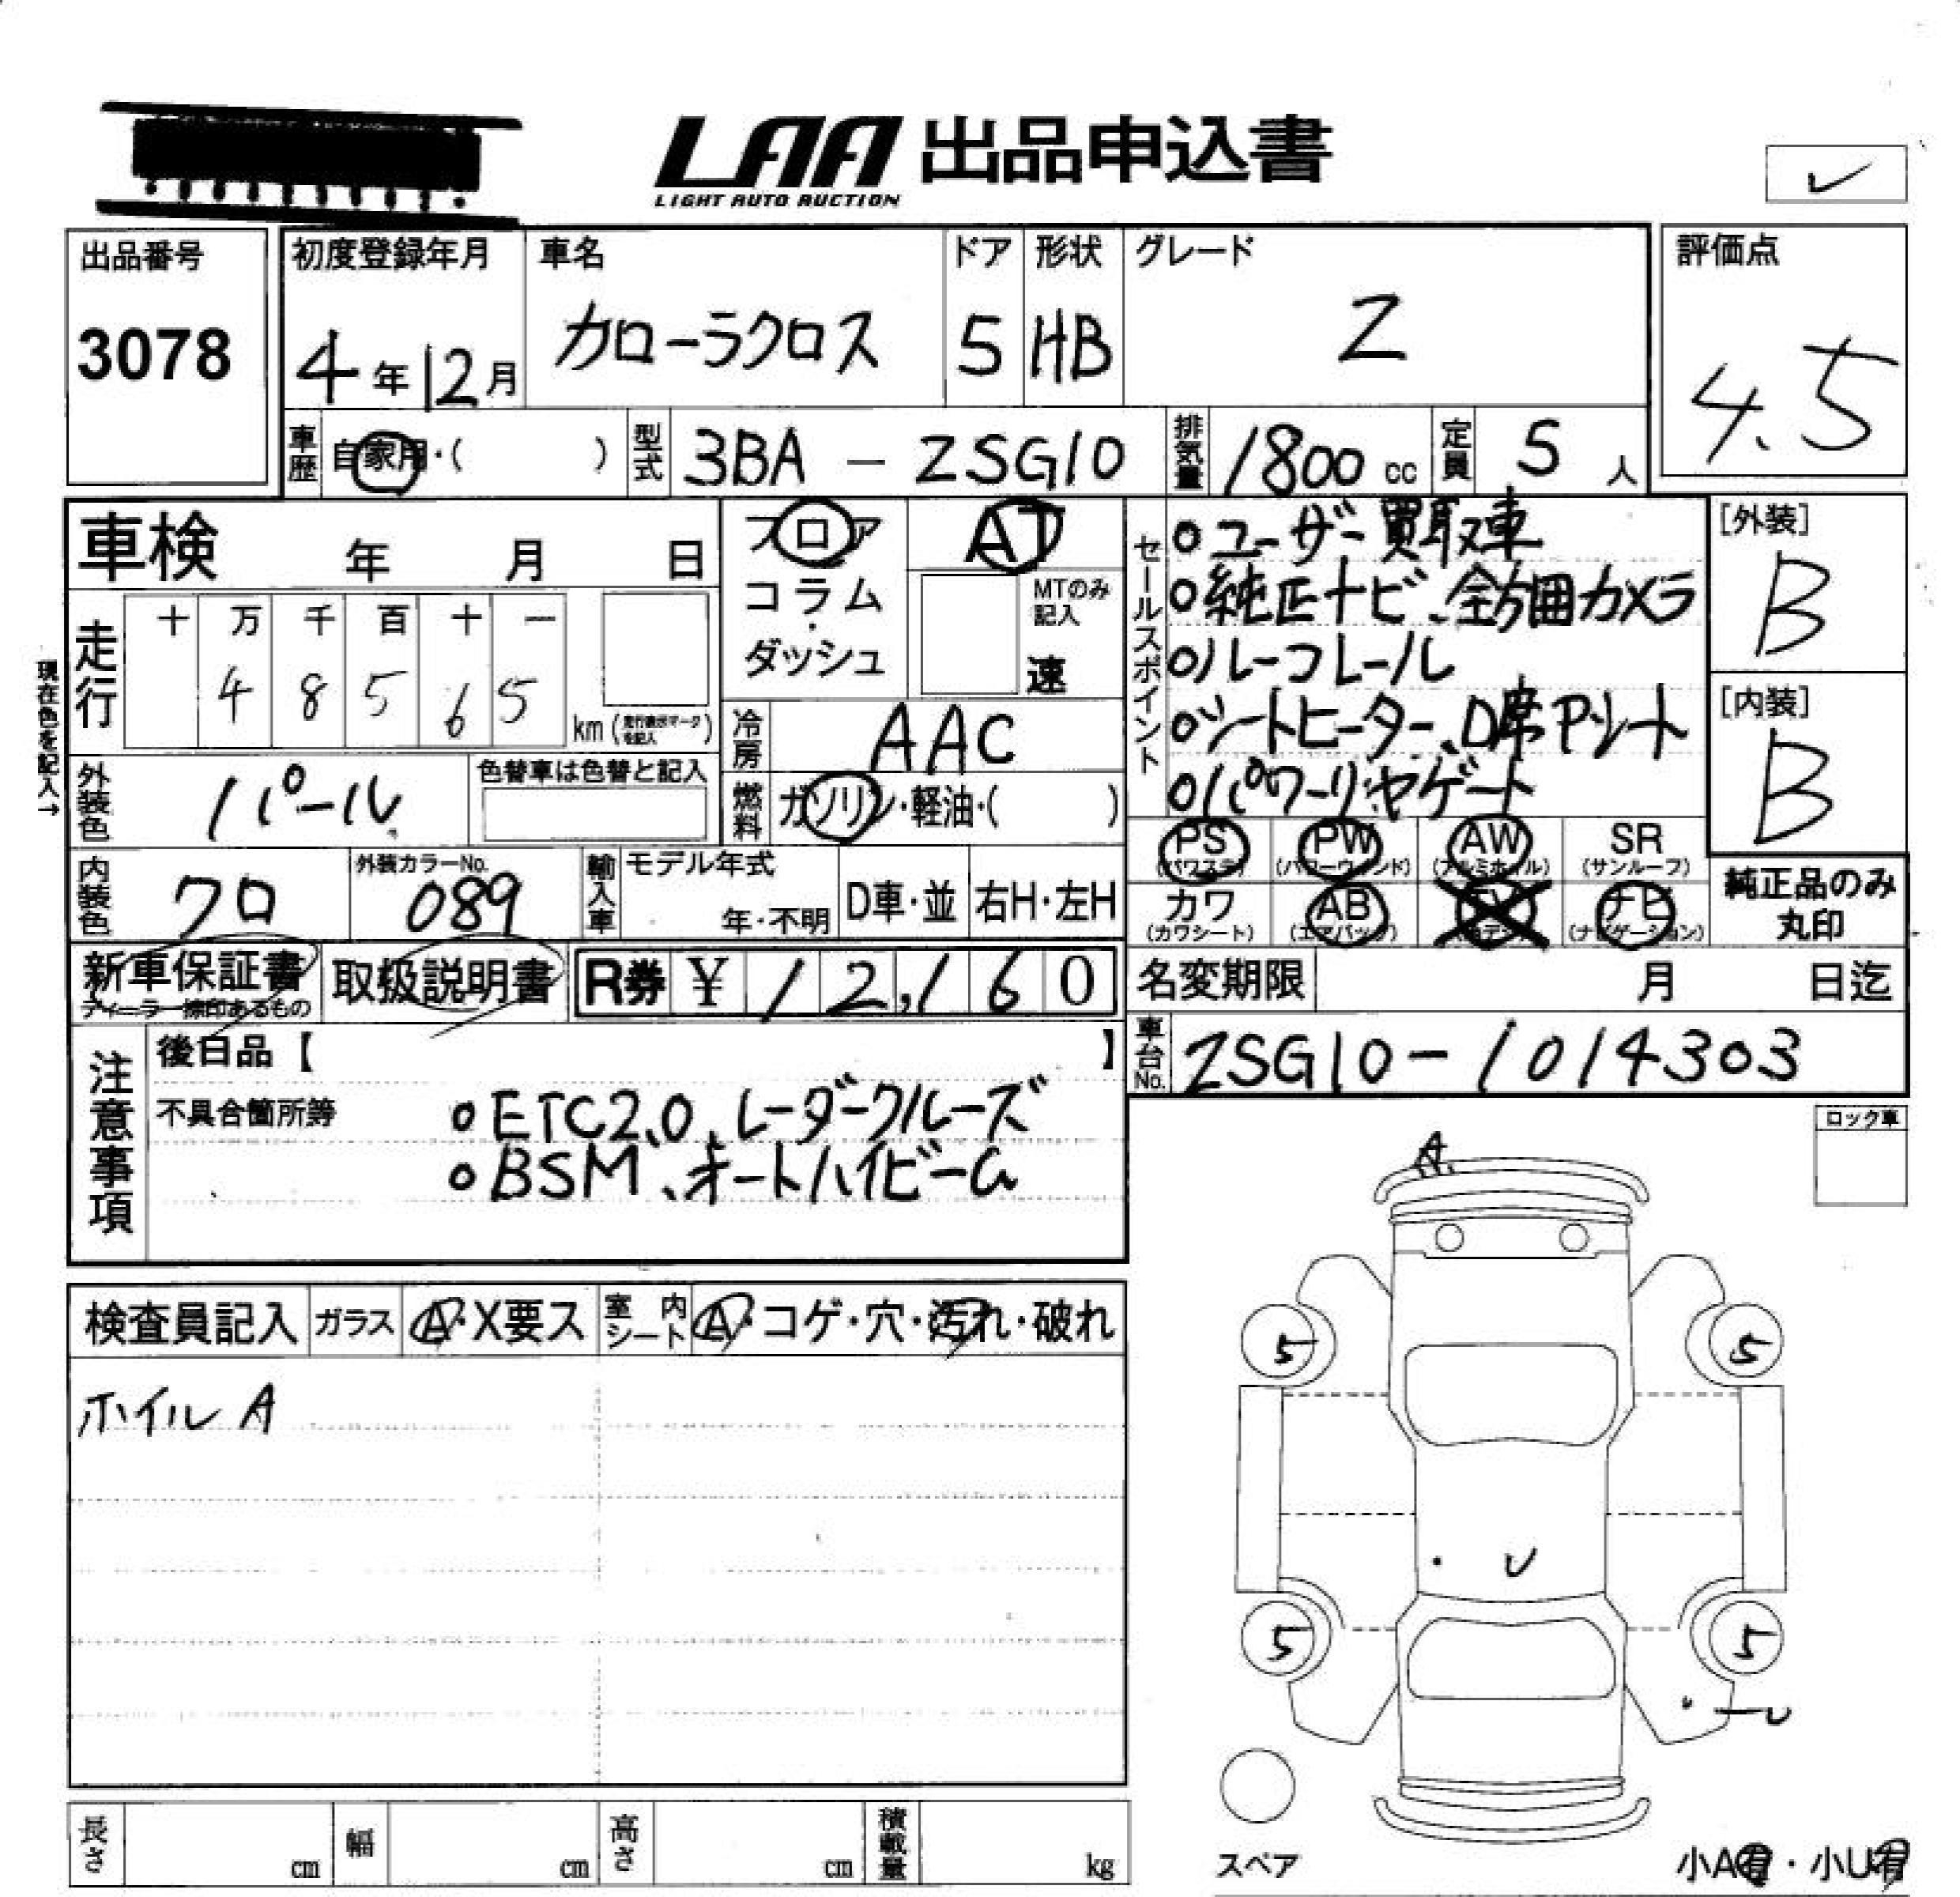 LAA 出品申込書
LIGHT AUTO AUCTION
レ
出品番号
3078
初度登録年月
4年12月
車名
カローラクロス
ドア
5
形状
HB
グレード
Z
評価点
4.5
車歴 自家用・( )
型式 3BA - ZSG10
排気量 1800 cc
定員 5 人
車検 年 月 日
フロア
コラム
・
ダッシュ
AT
MTのみ
記入
速
セールスポイント
○ユーザー買取車
○純正ナビ、全方囲カメラ
○ルーフレール
○シートヒーター、D席Pシート
○パワーリヤゲート
[外装]
B
[内装]
B
現在色を記入→
走行
十 万 千 百 十 一
4 8 5 6 5
km (走行表示マークを記入)
冷房 AAC
外装色 パール
色替車は色替と記入
燃料 ガソリン・軽油・( )
PS AW PW SR
(パワステ) (パワーウインド) (アルミホイル) (サンルーフ)
カワ AB TV ナビ
(カワシート) (エアバッグ) (ナビゲーション)
純正品のみ
丸印
内装色 クロ
外装カラーNo.
089
輸入車
モデル年式
年・不明
D車・並
右H・左H
新車保証書
ディーラー捺印あるもの
取扱説明書
R券 ¥ 12,160
名変期限 月 日迄
車台No. ZSG10-1014303
注意事項
後日品【 】
不具合箇所等
○ETC2.0、レーダークルーズ
○BSM、オートハイビーム
ロック車
A
検査員記入
ガラス A・X要ス
室内シート A・コゲ・穴・汚れ・破れ
ホイル A
5 5
・ U
5 5
・ー U
スペア
小A有・小U有
長さ cm
幅 cm
高さ cm
積載量 kg